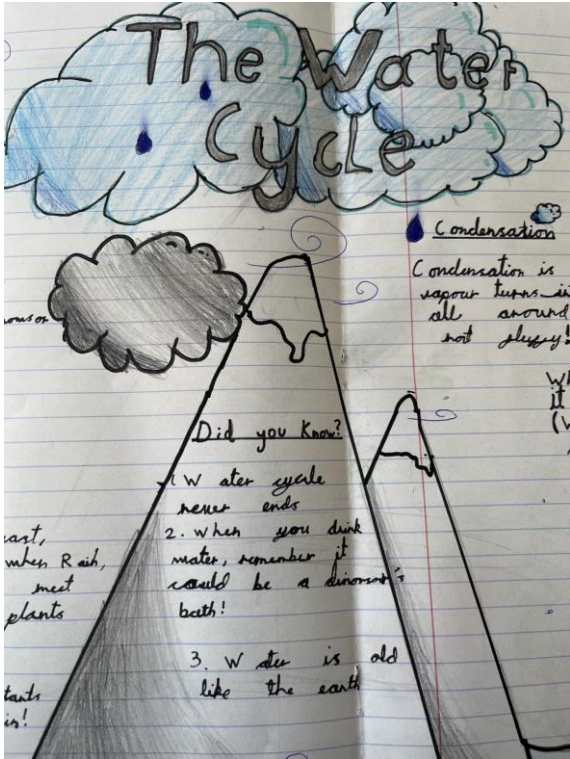 The Water
Cycle
Condensation
Condensation is
vapour turns
all around
not
Did you know?
1 Water cycle
never ends
2. When you drink
water, remember it
could be a dinorsor's
bath!
3. Water is old
like the earth
when Rain,
meet
plants